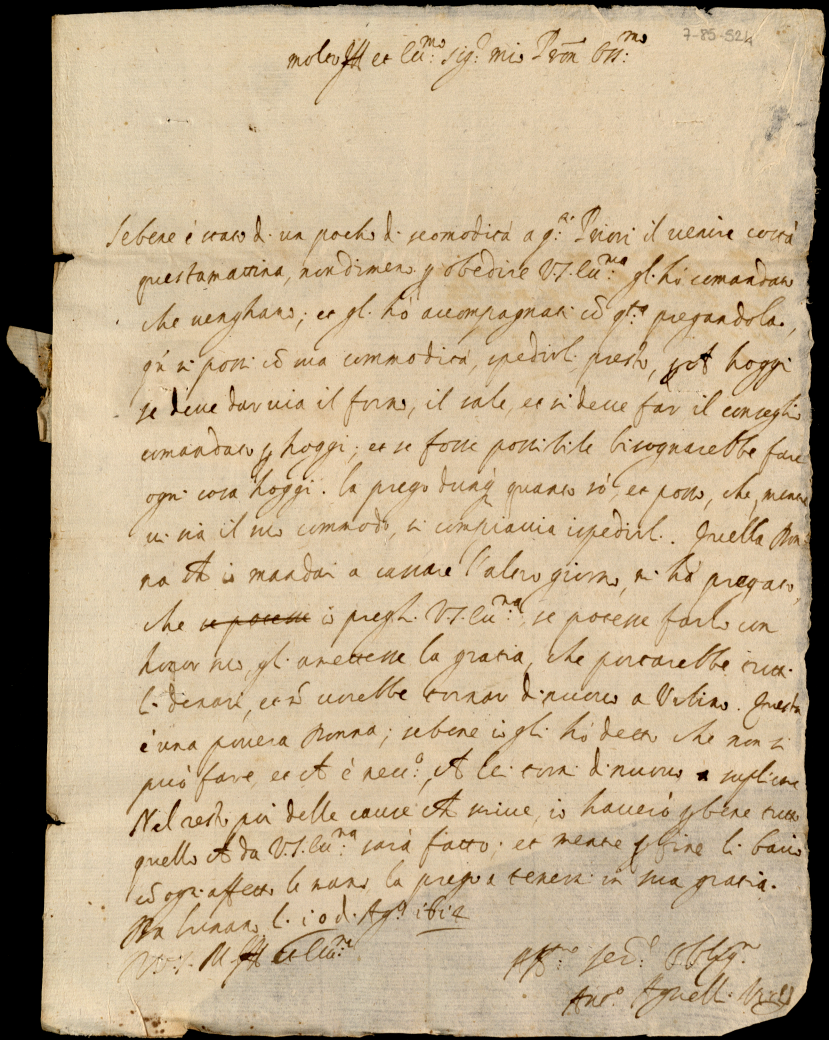 7-85-524
molto Ill et Ecc:mo sig:r mio Pron Oss:mo
Sebene è stato di un pocho di scomodità a q:sti Priori il venire costà
questa mattina, nondimeno p obedire V.S. Ecc:ma gl'hò comandato
che venghano; et gl'hò accompagnati cõ q:ta pregandola,
si possi cõ sua commodità, spedirli presto, hoggi
se deve dar via il forno, il sale, et si deve far il conseglio
comandato p hoggi; et se fosse possibile bisognarebbe fare
ogni cosa hoggi. La prego dunq quanto sò, et posso, che, mentre
vi sia il suo commodo, si compiaccia ispedirli. Quella Don-
na ch io mandai a cavare l'altro giorno, mi hà pregato,
che se potesse io preghi V.S. Ecc:ma, se potesse farlo con
honor suo, gli ametesse la gratia, che portarebbe tutti
li denari, et nõ vorebbe tornar di nuovo a Urbino. Questa
è una povera Donna; sebene io gli hò detto che non si
può fare, et ch è nec:o, ch lei torni di nuovo a suplicare
Nel resto poi delle cause ch scrive, io haverò p bene tutto
quello ch da V.S. Ecc:ma sarà fatto. et mentre p fine li bacio
cõ ogni affetto le mano, la prego a tenermi in sua gratia.
li 10 d'Ag:o 1612
Di V.S. M Ill et Ecc:ma
Aff:mo Ser:r Obblig:mo
Ant:o Agnelli